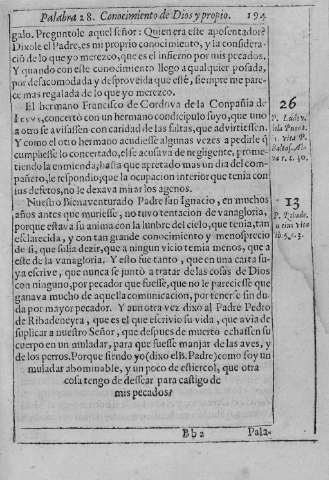 Palabra 28. Conocimiento de Dios y propio. 194
galo. Preguntole aquel señor: Quien era este aposentador?
Dixole el Padre, es mi proprio conocimiento, y la considera-
ció de lo que yo merezco, que es el infierno por mis pecados.
Y quando con este conocimiento llego a qualquier posada,
por desacomodada y desproveida que esté, siempre me pare-
ce mas regalada de lo que yo merezco.
El hermano Francisco de Cordova de la Compañia de
IESVS, concertò con un hermano condicipulo suyo, que uno
a otro se avisassen con caridad de las faltas, que advirtiessen.
Y como el otro hermano acudiesse algunas vezes a pedirle q̃
cumpliesse lo concertado, el se acusava de negligente, prome-
tiendo la enmienda, hasta que apretado mas un dia del com-
pañero, le respondio; que la ocupacion interior que tenia con
sus defetos, no le dexava mirar los agenos.
Nuestro Bienaventurado Padre san Ignacio, en muchos
años antes que muriesse, no tuvo tentacion de vanagloria,
porque estava su anima con la lumbre del cielo, que tenia, tan
esclarecida, y con tan grande conocimiento y menosprecio
de si, que solia dezir, que a ningun vicio temia menos, que a
este de la vanagloria. Y esto fue tanto, que en una carta su-
ya escrive, que nunca se juntò a tratar de las cosas de Dios
con ninguno, por pecador que fuesse, que no le pareciesse que
ganava mucho de aquella comunicacion, por tenerse sin du-
da por mayor pecador. Y aun otra vez dixo al Padre Pedro
de Ribadeneyra, que es el que escrivio su vida, que avia de
suplicar a nuestro Señor, que despues de muerto echassen su
cuerpo en un muladar, para que fuesse manjar de las aves, y
de los perros. Porque siendo yo (dixo el B. Padre) como soy un
muladar abominable, y un poco de estiercol, que otra
cosa tengo de dessear para castigo de
mis pecados?
26
P. Luis d'
la Puente
1. 30.
13
P. Ribade.
lib. 5. c. 3.
Bb2
Pala-